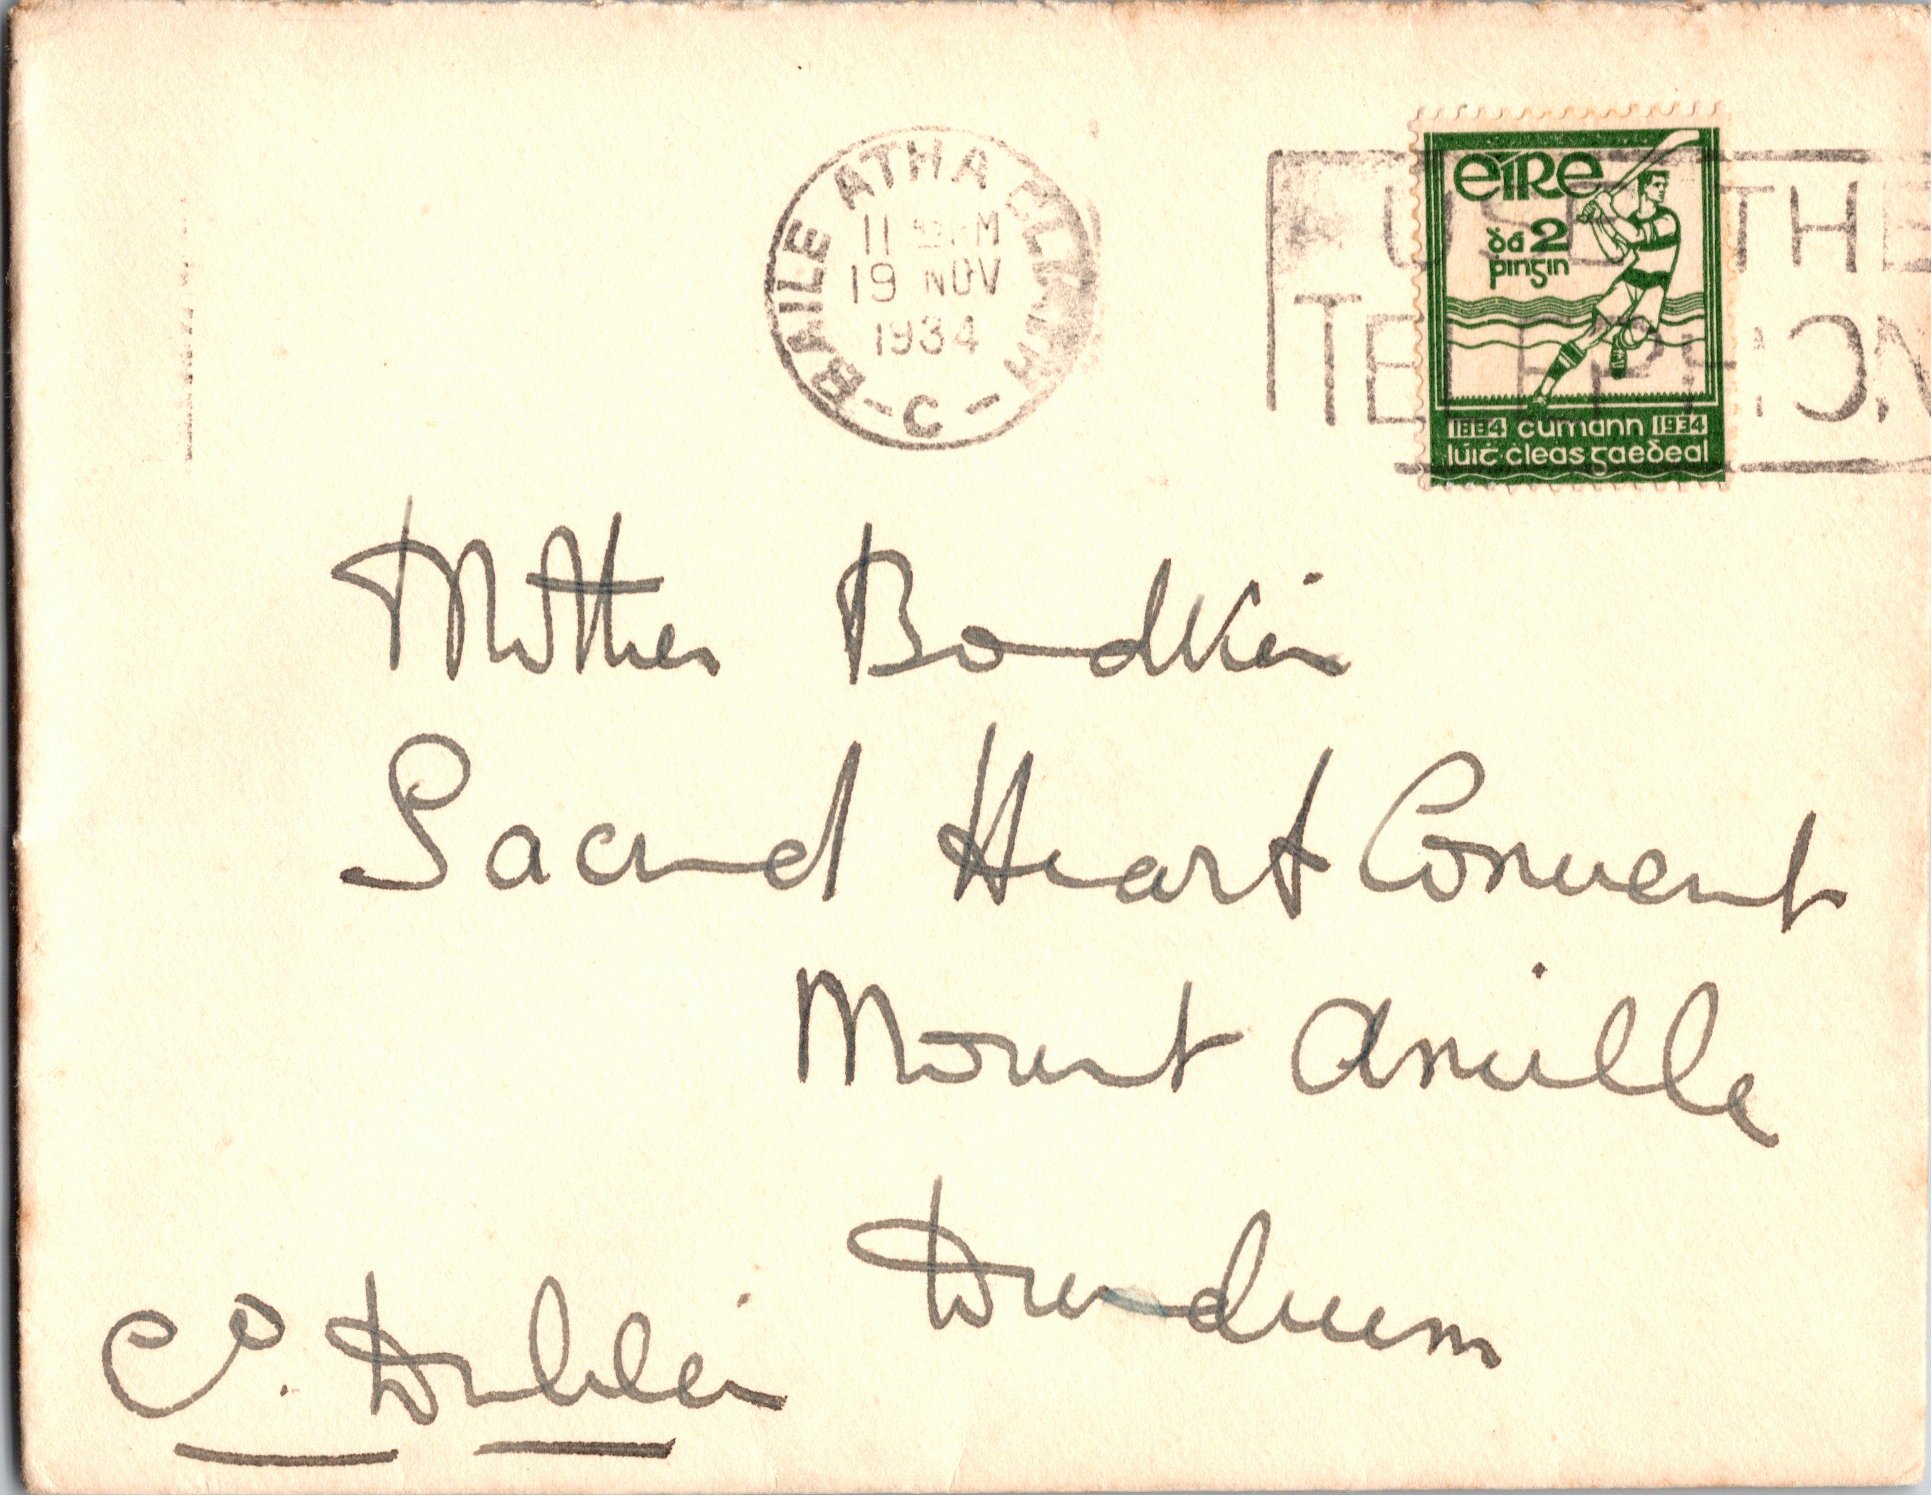 BAILE ATHA CLIATH
11 PM
19 NOV
1934
- C -
USE THE
TELEPHON
éire
ḋá 2
ṗingin
1884 cumann 1934
lúiṫ·ċleas gaeḋeal
Mother Bodkin
Sacred Heart Convent
Mount Anville
Dundrum
Co. Dublin